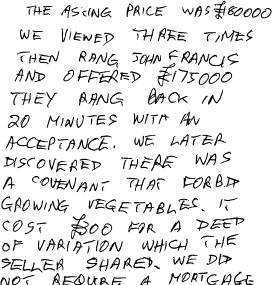 THE ASKING PRICE WAS £180000
WE VIEWED THREE TIMES
THEN RANG JOHN FRANCIS
AND OFFERED £175000
THEY RANG BACK IN
20 MINUTES WITH AN
ACCEPTANCE. WE LATER
DISCOVERED THERE WAS
A COVENANT THAT FORBAD
GROWING VEGETABLES. IT
COST £300 FOR A DEED
OF VARIATION WHICH THE
SELLER SHARED. WE DID
NOT REQUIRE A MORTGAGE